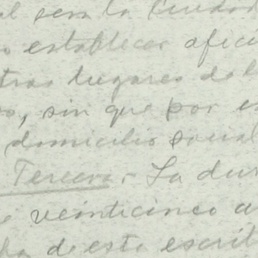 al será la Ciudad
establecer ofici
tros lugares de l
o, sin que por es
domicilio social
Tercera. La dur
veinticinco a
ha de esta escrit